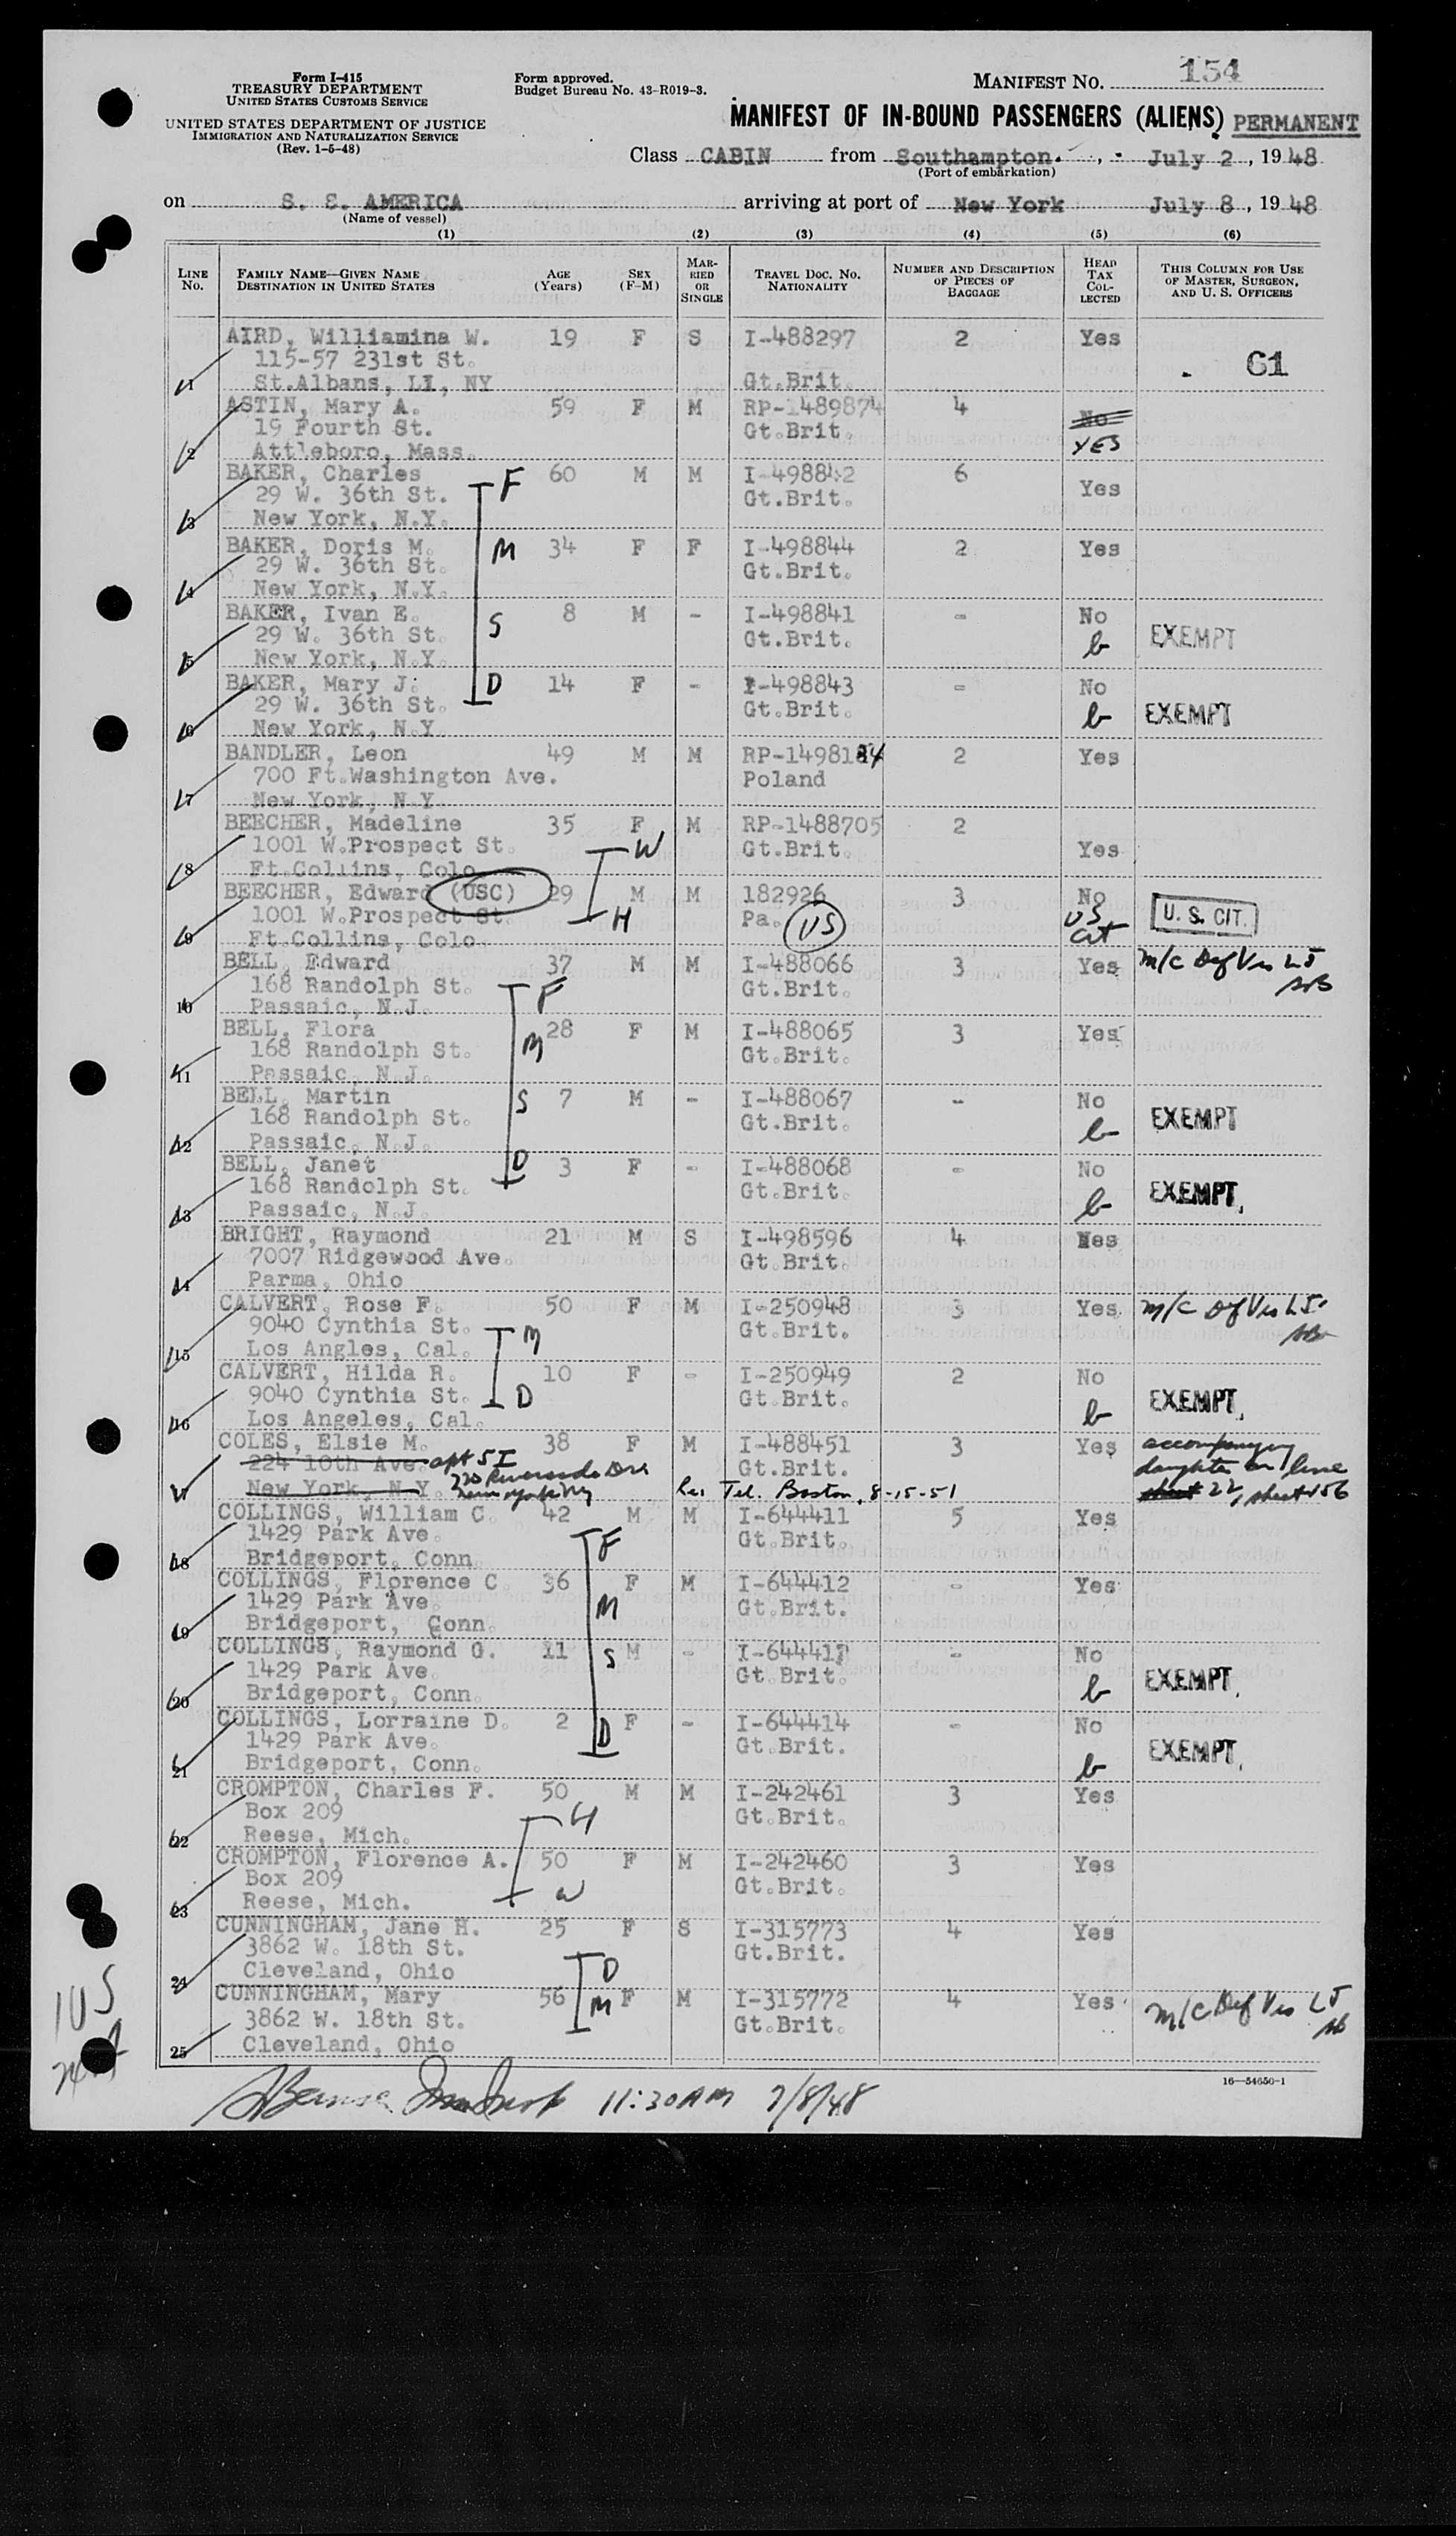 Form I-415
TREASURY DEPARTMENT
UNITED STATES CUSTOMS SERVICE
UNITED STATES DEPARTMENT OF JUSTICE
IMMIGRATION AND NATURALIZATION SERVICE
(Rev. 1-5-48)
Form approved.
Budget Bureau No. 43-R019-3.
MANIFEST NO. 154
MANIFEST OF IN-BOUND PASSENGERS (ALIENS) PERMANENT
Class CABIN from Southampton. , July 2, 1948
(Port of embarkation)
on S. S. AMERICA arriving at port of New York July 8, 1948
(Name of vessel)
(1) (2) (3) (4) (5) (6)
LINE No. FAMILY NAME—GIVEN NAME DESTINATION IN UNITED STATES AGE (Years) SEX (F-M) MARRIED OR SINGLE TRAVEL DOC. NO. NATIONALITY NUMBER AND DESCRIPTION OF PIECES OF BAGGAGE HEAD TAX COLLECTED THIS COLUMN FOR USE OF MASTER, SURGEON, AND U. S. OFFICERS
AIRD, Williamina W. 19 F S I-488297 2 Yes
115-57 231st St. 61
1 St.Albans, LI, NY Gt.Brit.
ASTIN, Mary A. 59 F M RP-1489874 4 No
19 Fourth St. Gt.Brit. YES
2 Attleboro, Mass.
BAKER, Charles F 60 M M I-498842 6 Yes
29 W. 36th St. Gt.Brit.
3 New York, N.Y.
BAKER, Doris M. M 34 F F I-498844 2 Yes
29 W. 36th St. Gt.Brit.
4 New York, N.Y.
BAKER, Ivan E. S 8 M - I-498841 - No
29 W. 36th St. Gt.Brit. b EXEMPT
5 New York, N.Y.
BAKER, Mary J. D 14 F - I-498843 - No
29 W. 36th St. Gt.Brit. b EXEMPT
6 New York, N.Y.
BANDLER, Leon 49 M M 2 Yes
700 Ft.Washington Ave. Poland
7 New York, N.Y.
BEECHER, Madeline 35 F M RP-1488705 2
1001 W.Prospect St. W Gt.Brit. Yes
8 Ft.Collins, Colo.
BEECHER, Edward (USC) 29 M M 182926 3 No
1001 W.Prospect St. H Pa. US US Cit U. S. CIT.
9 Ft.Collins, Colo.
BELL, Edward 37 M M I-488066 3 Yes m/c Def Vis LJ
168 Randolph St. F Gt.Brit.
10 Passaic, N.J.
BELL, Flora 28 F M I-488065 3 Yes
168 Randolph St. M Gt.Brit.
11 Passaic, N.J.
BELL, Martin S 7 M - I-488067 - No
168 Randolph St. Gt.Brit. b EXEMPT
12 Passaic, N.J.
BELL, Janet D 3 F - I-488068 - No
168 Randolph St. Gt.Brit. b EXEMPT
13 Passaic, N.J.
BRIGHT, Raymond 21 M S I-498596 4 Yes
7007 Ridgewood Ave. Gt.Brit.
14 Parma, Ohio
CALVERT, Rose F. 50 F M I-250948 3 Yes m/c Def Vis LJ
9040 Cynthia St. M Gt.Brit.
15 Los Angles, Cal.
CALVERT, Hilda R. 10 F - I-250949 2 No
9040 Cynthia St. D Gt.Brit. b EXEMPT
16 Los Angeles, Cal.
COLES, Elsie M. 38 F M I-488451 3 Yes accompanying
224 10th Ave. apt 5I Gt.Brit. daughter on line
17 New York, N.Y. 220 Riverside Dr New York Ny Tel. Boston, 8-15-51 sheet 22, sheet 156
COLLINGS, William C. 42 M M I-644411 5 Yes
1429 Park Ave. F Gt.Brit.
18 Bridgeport, Conn.
COLLINGS, Florence C. 36 F M I-644412 - Yes
1429 Park Ave. M Gt.Brit.
19 Bridgeport, Conn.
COLLINGS, Raymond G. 11 S M - - No
1429 Park Ave. Gt.Brit. b EXEMPT
20 Bridgeport, Conn.
COLLINGS, Lorraine D. 2 D F - I-644414 - No
1429 Park Ave. Gt.Brit. b EXEMPT
21 Bridgeport, Conn.
CROMPTON, Charles F. 50 M M I-242461 3 Yes
Box 209 H Gt.Brit.
22 Reese, Mich.
CROMPTON, Florence A. 50 F M I-242460 3 Yes
Box 209 W Gt.Brit.
23 Reese, Mich.
CUNNINGHAM, Jane H. 25 F S I-315773 4 Yes
3862 W. 18th St. D Gt.Brit.
24 Cleveland, Ohio
CUNNINGHAM, Mary 56 M F M I-315772 4 Yes m/c Def Vis LJ
3862 W. 18th St. Gt.Brit.
25 Cleveland, Ohio
1US
16—54650-1
11:30AM 7/8/48